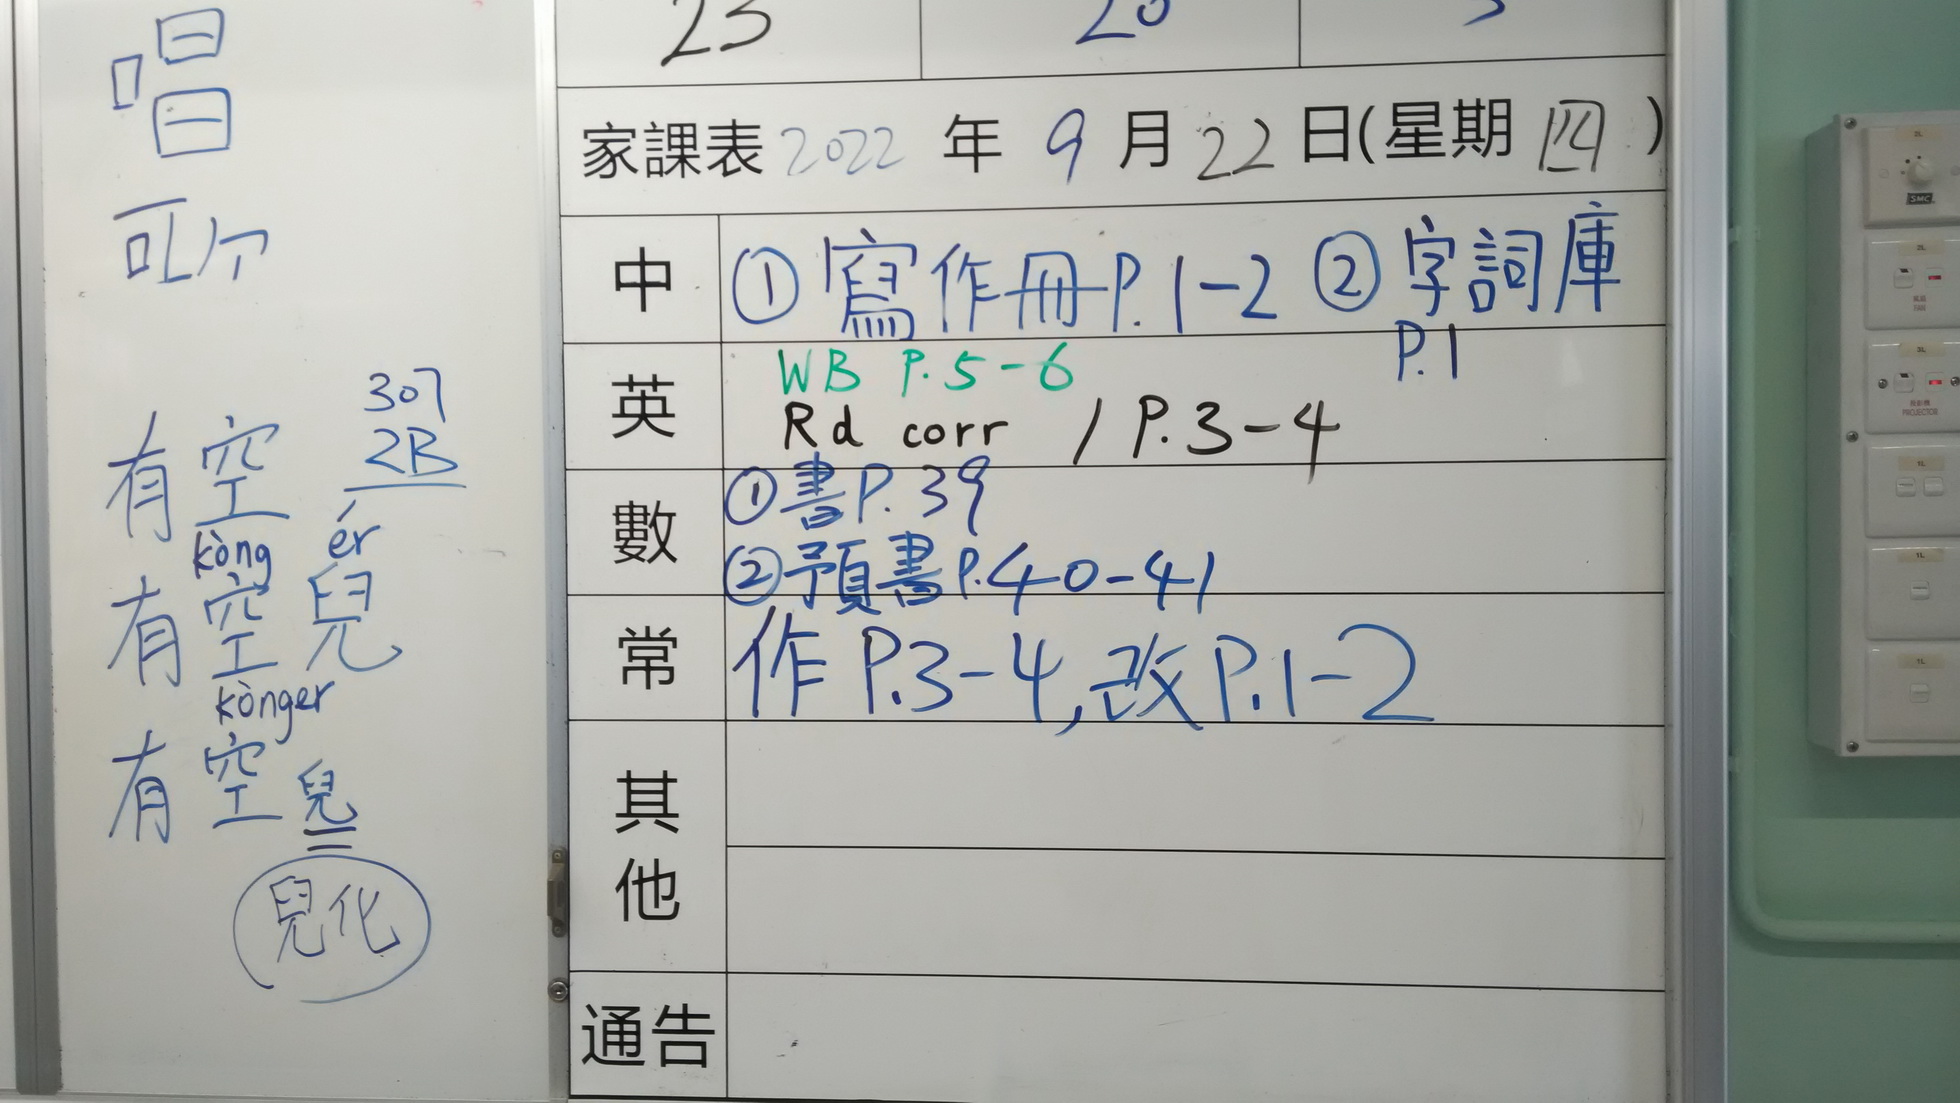 唱
307
2B
有空
kòng ér
有空兒
kònger
有空兒
兒化
23 20
家課表 2022 年 9 月 22 日(星期 四 )
中 ① 寫作冊 P.1-2 ② 字詞庫
P.1
英 WB P.5-6
Rd corr / P.3-4
數 ① 書 P.39
② 預書 P.40-41
常 作 P.3-4, 改 P.1-2
其他
通告
SMC
FAN
PROJECTOR